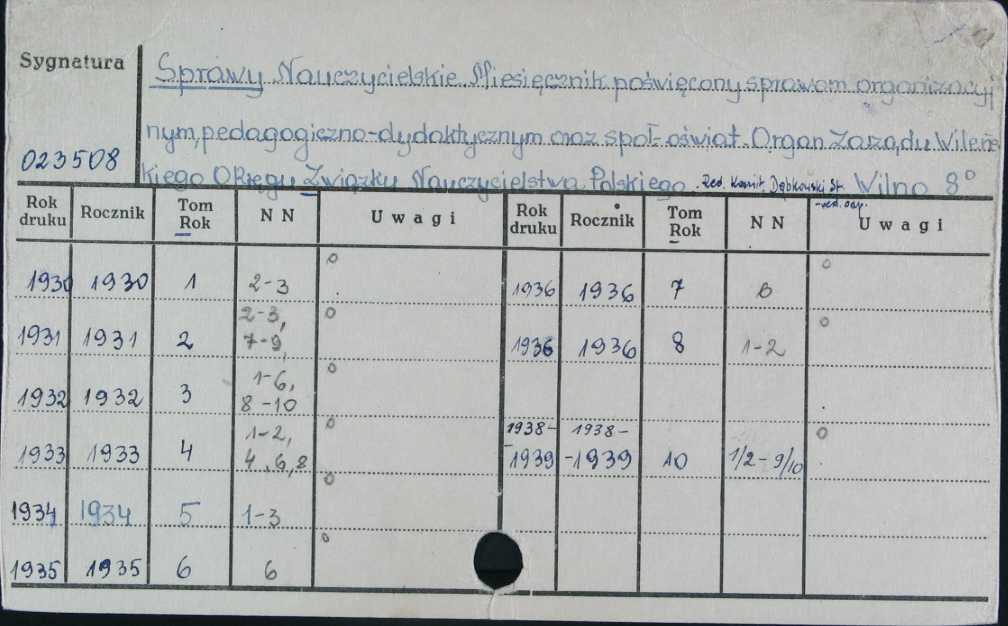 Sygnatura
Sprawy Nauczycielskie. Miesięcznik poświęcony sprawom organizacyj
nym, pedagogiczno-dydaktycznym oraz społ-oświat. Organ Zarządu Wileńs
023508
kiego Okręgu Związku Nauczycielstwa Polskiego. Red. Komit. Dąbkowski St. Wilno 8°
-red. odp.
Rok druku Rocznik Tom Rok NN Uwagi Rok druku Rocznik Tom Rok NN Uwagi
1930 1930 1 2-3 o 1936 1936 7 8 o
1931 1931 2 2-3, 7-9, o 1936 1936 8 1-2 o
1932 1932 3 1-6, 8-10 o
1933 1933 4 1-2, 4, 6, 8 o 1938-1939 1938-1939 10 1/2-9/10 o
1934 1934 5 1-3 o
1935 1935 6 6 o